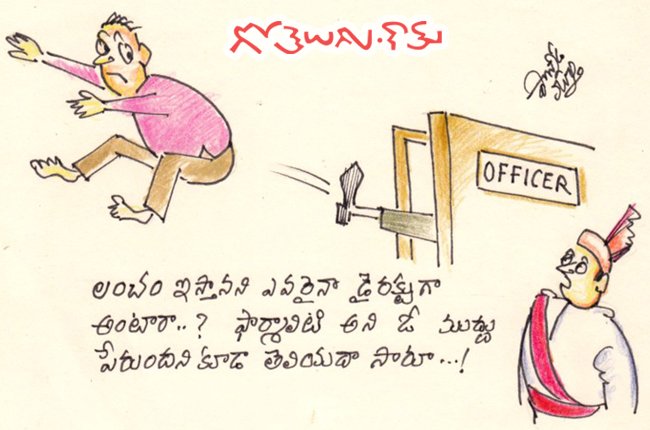 OFFICER
లంచం ఇస్తానని ఎవరైనా డైరక్టుగా
అంటారా..? ఫార్మాలిటి అని ఓ ముద్దు
పేరుందని కూడా తెలియదా సారూ...!